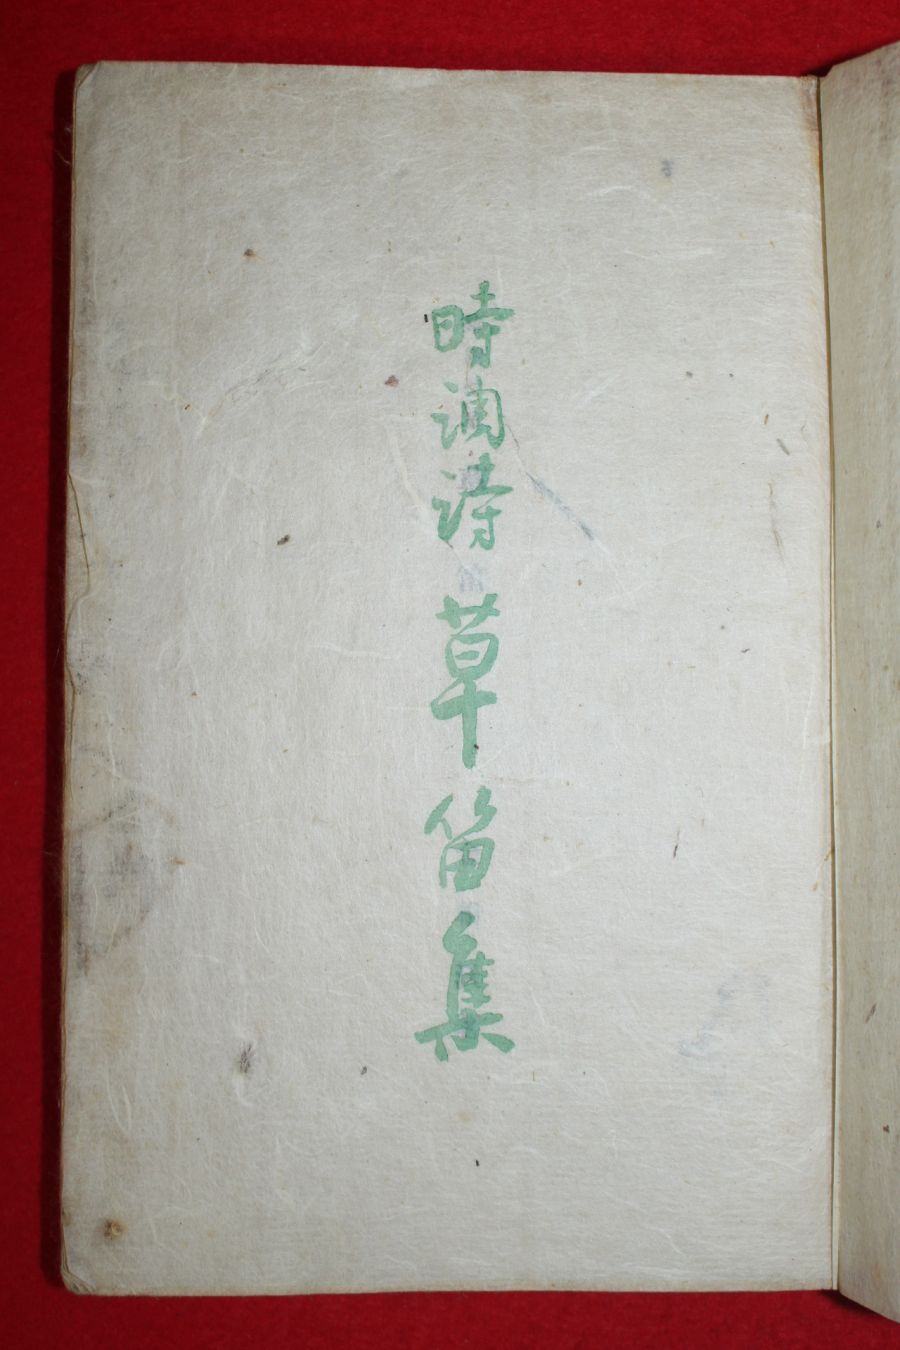 時調詩 草笛集